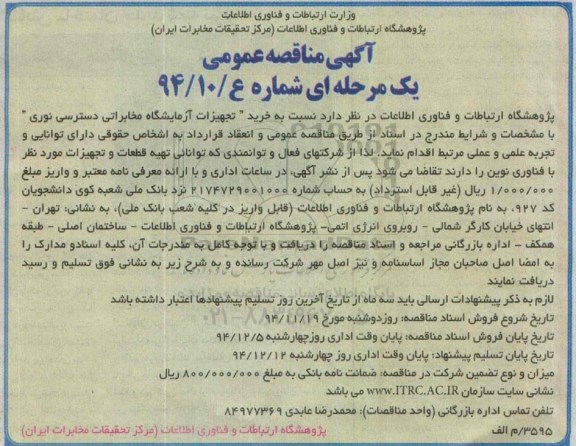 وزارت ارتباطات و فناوری اطلاعات
پژوهشگاه ارتباطات و فناوری اطلاعات (مرکز تحقیقات مخابرات ایران)
آگهی مناقصه عمومی
یک مرحله ای شماره ع/۹۴/۱۰
پژوهشگاه ارتباطات و فناوری اطلاعات در نظر دارد نسبت به خرید " تجهیزات آزمایشگاه مخابراتی دسترسی نوری "
با مشخصات و شرایط مندرج در اسناد از طریق مناقصه عمومی و انعقاد قرارداد به اشخاص حقوقی دارای توانایی و
تجربه علمی و عملی مرتبط اقدام نماید. لذا از شرکتهای فعال و توانمندی که توانائی تهیه قطعات و تجهیزات مورد نظر
با فناوری نوین را دارند تقاضا می شود پس از نشر آگهی، در ساعات اداری و با ارائه معرفی نامه معتبر و واریز مبلغ
۱/۰۰۰/۰۰۰ ریال (غیر قابل استرداد) به حساب شماره ۲۱۷۴۷۲۹۰۰۱۰۰۰ نزد بانک ملی شعبه کوی دانشجویان
کد ۹۲۷، به نام پژوهشگاه ارتباطات و فناوری اطلاعات (قابل واریز در کلیه شعب بانک ملی)، به نشانی: تهران -
انتهای خیابان کارگر شمالی - روبروی انرژی اتمی- پژوهشگاه ارتباطات و فناوری اطلاعات - ساختمان اصلی - طبقه
همکف - اداره بازرگانی مراجعه و اسناد مناقصه را دریافت و با توجه کامل به مندرجات آن، کلیه اسنادو مدارک را
به امضا اصل صاحبان مجاز اساسنامه و نیز اصل مهر شرکت رسانده و به شرح زیر به نشانی فوق تسلیم و رسید
دریافت نمایند
لازم به ذکر پیشنهادات ارسالی باید سه ماه از تاریخ آخرین روز تسلیم پیشنهادها اعتبار داشته باشد
تاریخ شروع فروش اسناد مناقصه: روزدوشنبه مورخ ۹۴/۱۱/۱۹
تاریخ پایان فروش اسناد مناقصه: پایان وقت اداری روزچهارشنبه ۹۴/۱۲/۵
تاریخ پایان تسلیم پیشنهاد: پایان وقت اداری روز چهارشنبه ۹۴/۱۲/۱۲
میزان و نوع تضمین شرکت در مناقصه: ضمانت نامه بانکی به مبلغ ۸۰۰/۰۰۰/۰۰۰ ریال
نشانی سایت سازمان WWW.ITRC.AC.IR می باشد
تلفن تماس اداره بازرگانی (واحد مناقصات): محمدرضا عابدی ۸۴۹۷۷۳۶۹
۳۵۹۵/م الف
پژوهشگاه ارتباطات و فناوری اطلاعات (مرکز تحقیقات مخابرات ایران)